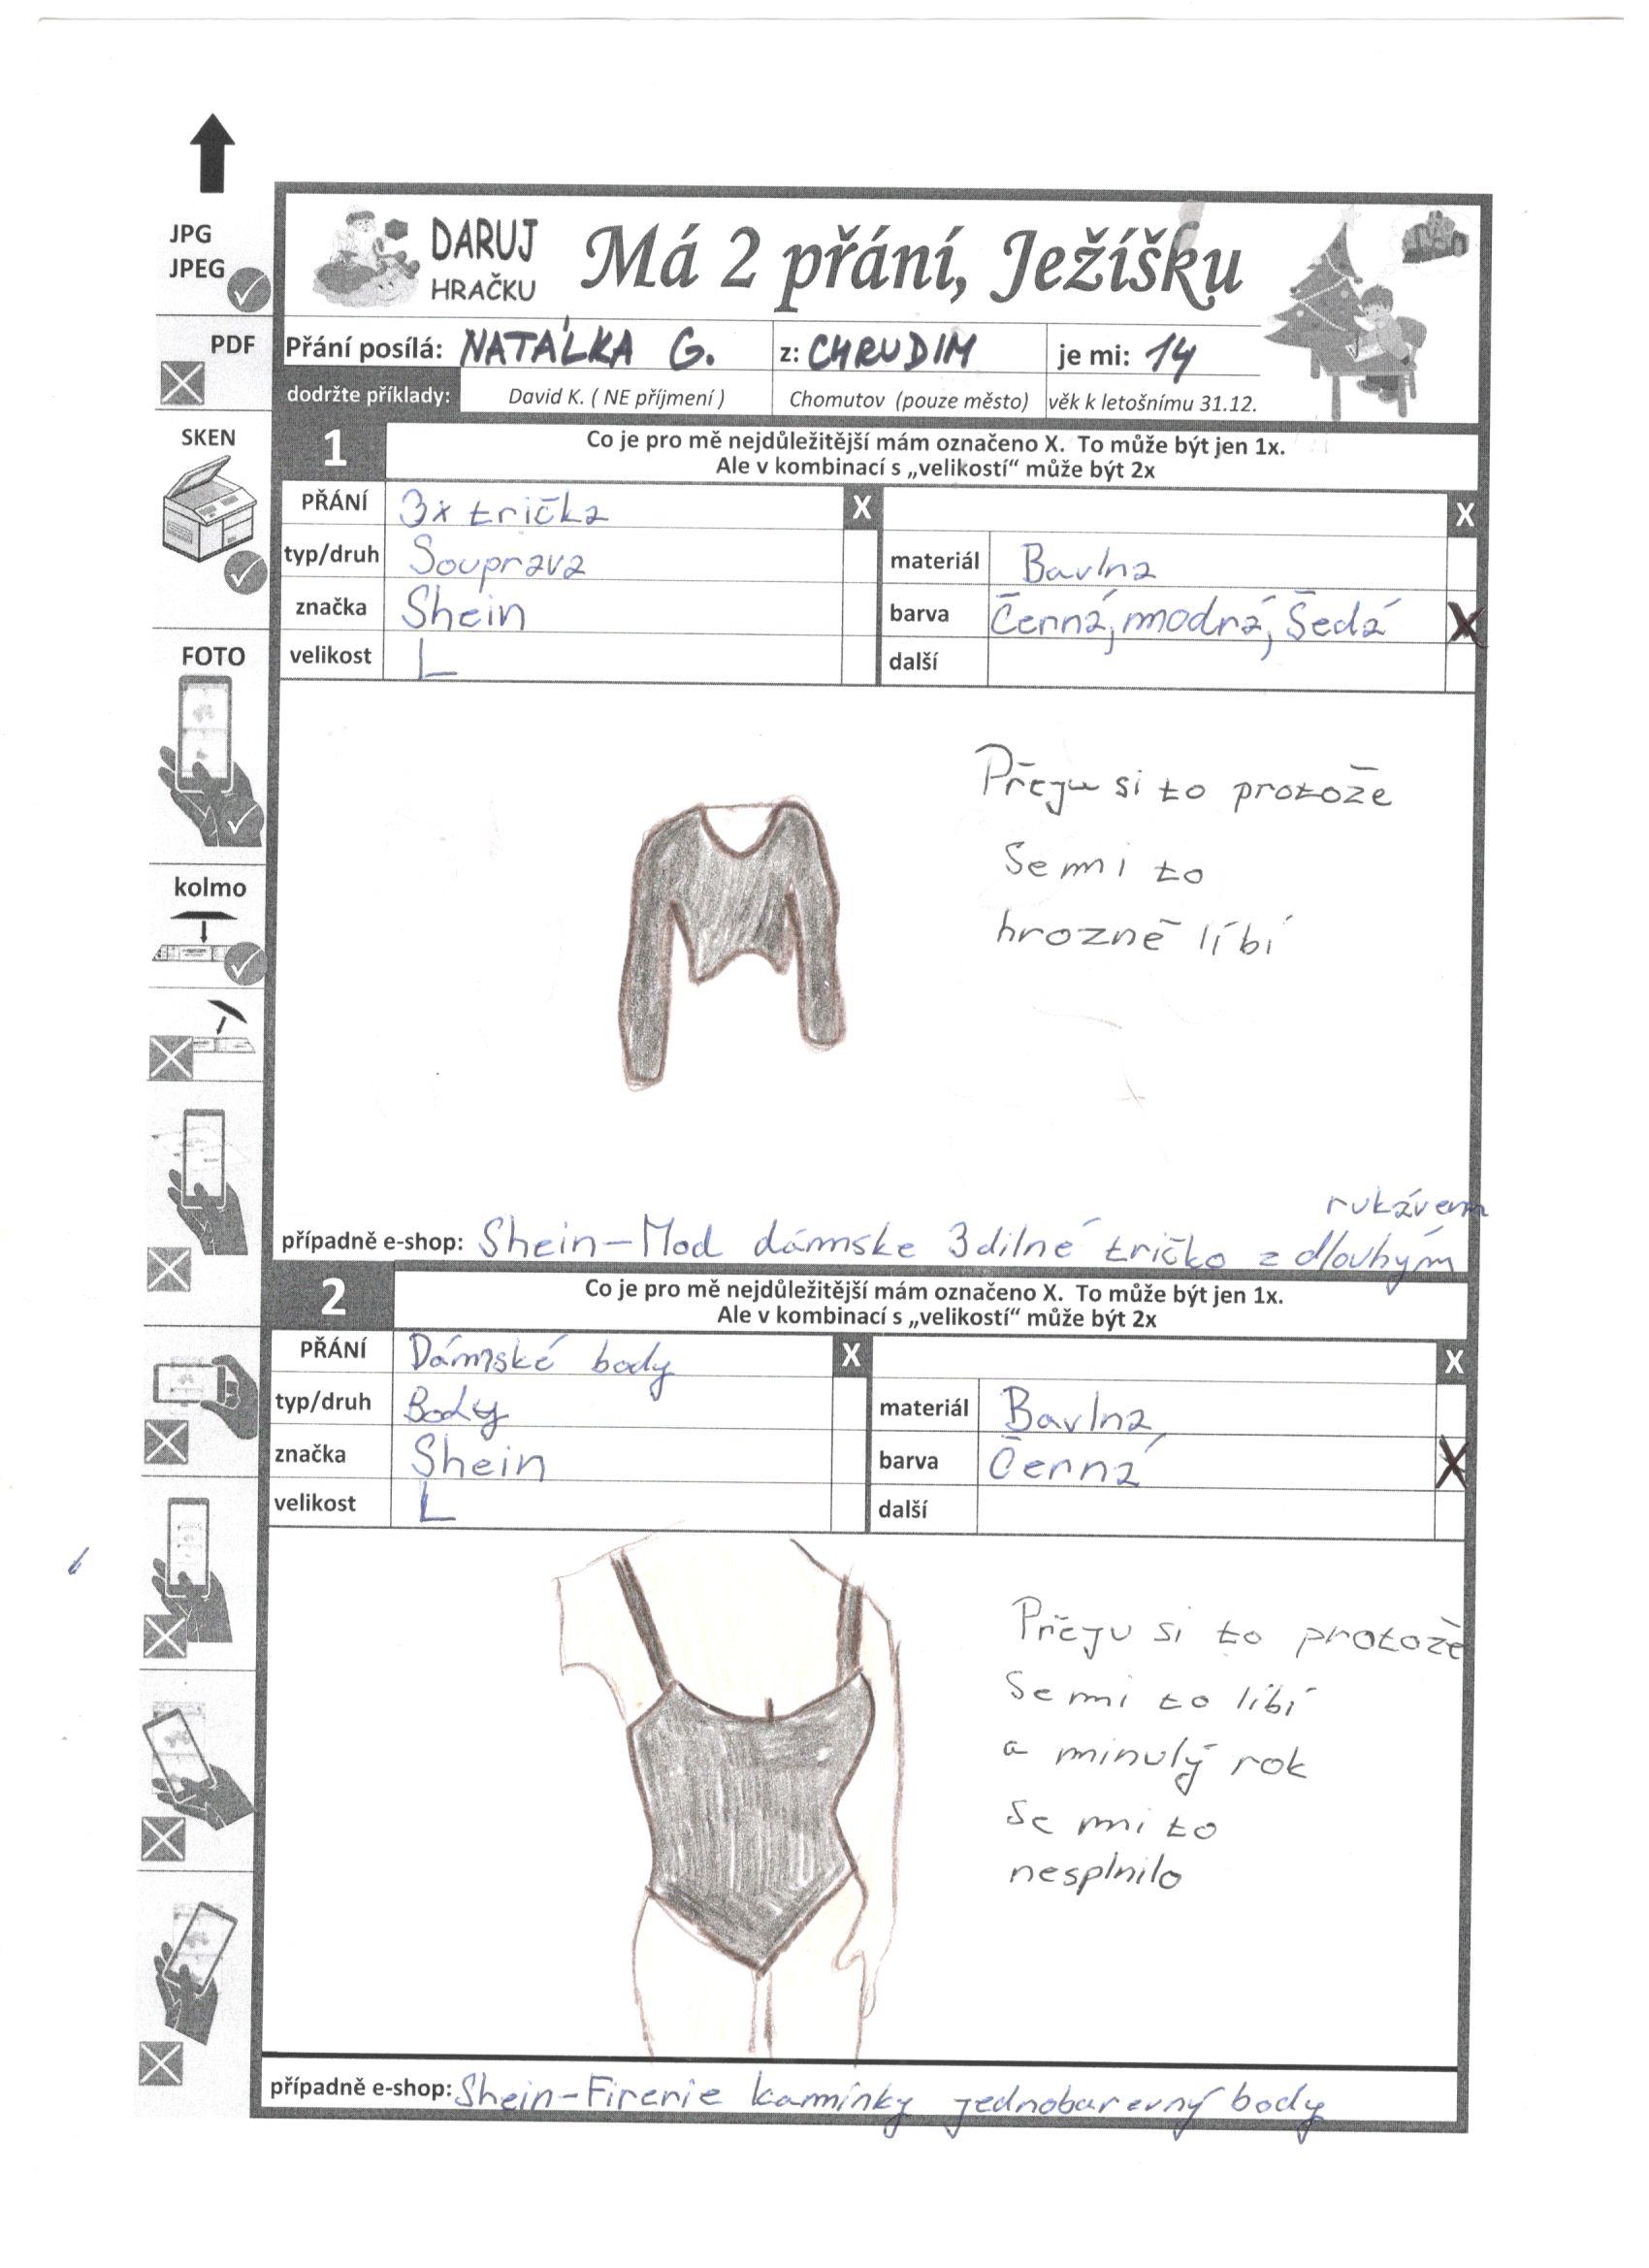 JPG
JPEG
PDF
SKEN
FOTO
kolmo
DARUJ
HRAČKU
Má 2 přání, Ježíšku
Přání posílá: NATÁLKA G. z: CHRUDIM je mi: 14
dodržte příklady: David K. ( NE příjmení ) Chomutov (pouze město) věk k letošnímu 31.12.
1
Co je pro mě nejdůležitější mám označeno X. To může být jen 1x.
Ale v kombinací s „velikostí“ může být 2x
PŘÁNÍ 3x trička X X
typ/druh Souprava materiál Bavlna
značka Shein barva Černá, modrá, Šedá X
velikost L další
Přeju si to protože
Se mi to
hrozně líbí
rukávem
případně e-shop: Shein-Mod dámske 3dílné tričko z dlouhým
2
Co je pro mě nejdůležitější mám označeno X. To může být jen 1x.
Ale v kombinací s „velikostí“ může být 2x
PŘÁNÍ Dámské body X X
typ/druh Body materiál Bavlna
značka Shein barva Černá X
velikost L další
Přeju si to protože
Se mi to líbí
a minulý rok
Se mi to
nesplnilo
případně e-shop: Shein-Firerie kamínky jednobarevný body